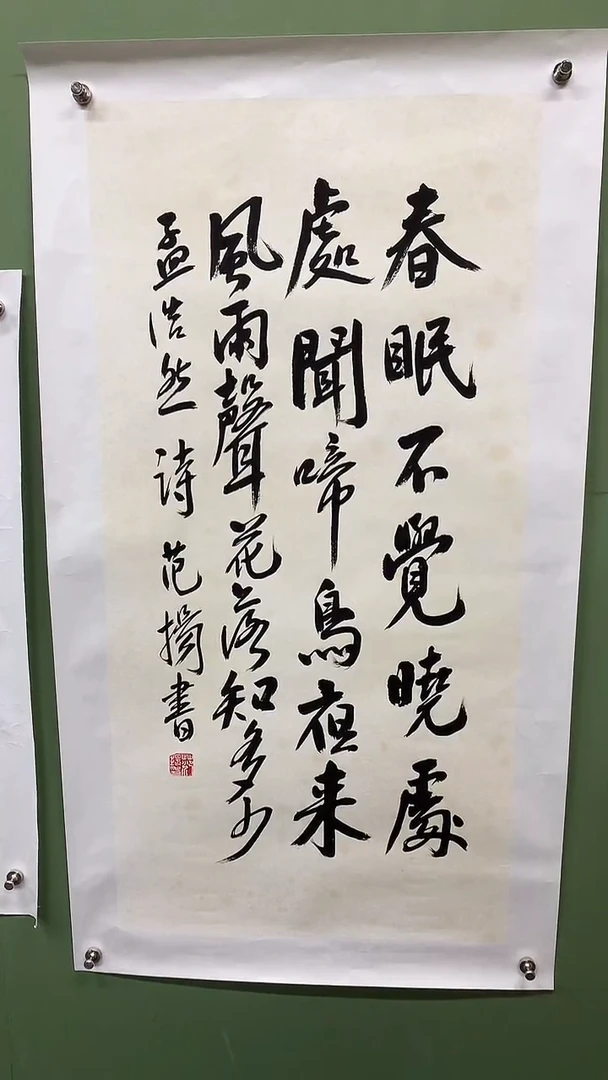 春眠不覺曉處
處聞啼鳥夜来
風雨聲花落知多少
孟浩然詩范書